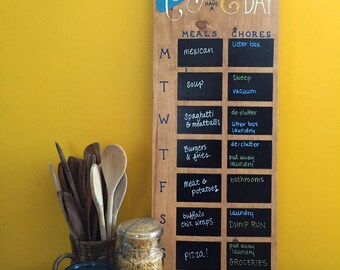 HAVE
A DAY
MEALS CHORES
M mexican litter box
T soup sweep
vacuum
W spaghetti
& meatballs de-clutter
litter box
laundry
T Burgers
& fries de-clutter
put away
laundry
F meat &
potatoes bathrooms
S buffalo
chix wraps laundry
DUMP RUN
S pizza! put away
laundry
GROCERIES